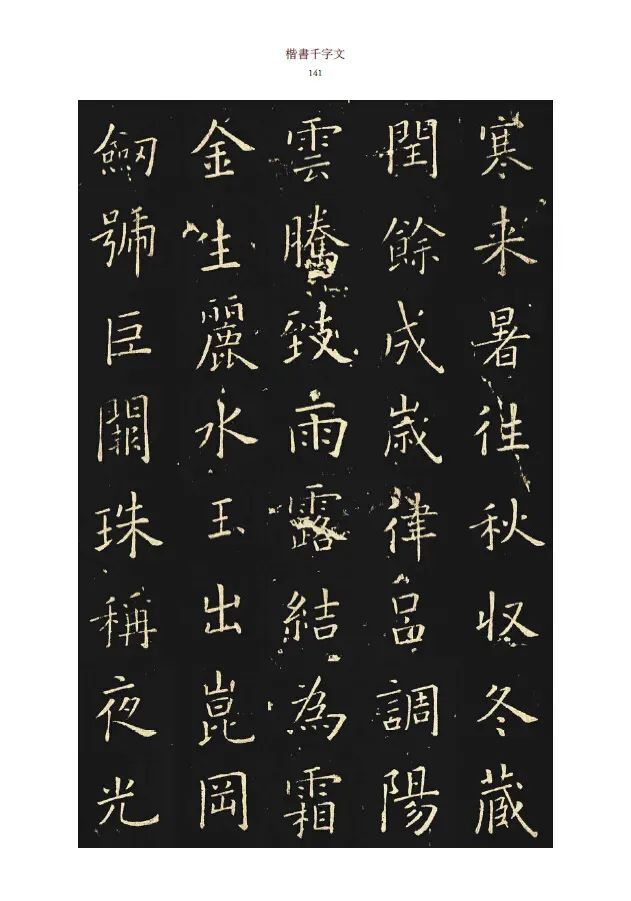 楷書千字文
141
寒来暑往秋收冬蔵
閏餘成歳律呂調陽
雲騰致雨露結為霜
金生麗水玉出崑岡
劒號巨闕珠稱夜光